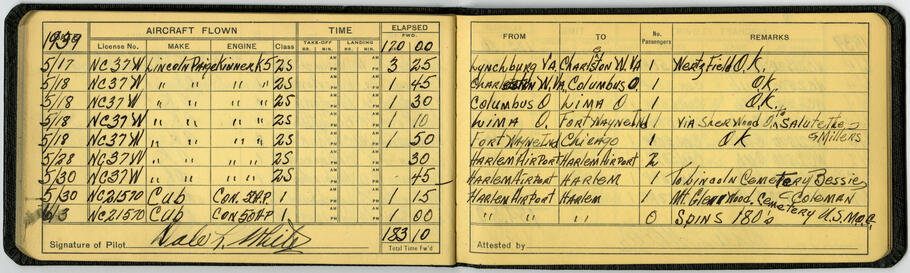 1939 AIRCRAFT FLOWN TIME ELAPSED
License No. MAKE ENGINE Class TAKE-OFF HR. MIN. LANDING HR. MIN. FWD. 170 00
5/17 NC37W Lincoln Page Kinner K5 2S 3 25
5/18 NC37W " " " " 2S 1 45
5/18 NC37W " " " " 2S 1 30
5/18 NC37W " " " " 2S 1 10
5/18 NC37W " " " " 2S 1 50
5/28 NC37W " " " " 2S 30
5/30 NC37W " " " " 2S 45
5/30 NC21570 Cub Con. 50H.P. 1 1 15
6/3 NC21570 Cub Con 50H.P 1 1 00
Signature of Pilot Dale L. White 183 10
Total Time Fw'd
FROM TO No. Passengers REMARKS
Lynchburg VA. Charlston W.VA 1 Wertz Field O.K.
Charleston W.VA. Columbus O. 1 O.K.
Columbus O. Lima O. 1 O.K.
Lima O. Fort Wayne Ind 1 Via Sherwood O. to Salute The Millers
Fort Wayne Ind Chicago 1 OK
Harlem Airport Harlem Airport 2
Harlem Airport Harlem 1 To Lincoln Cemetery Bessie Coleman
Harlem Airport Harlem 1 Mt. Glenwood Cemetery
" " " " 0 Spins 180's
Attested by